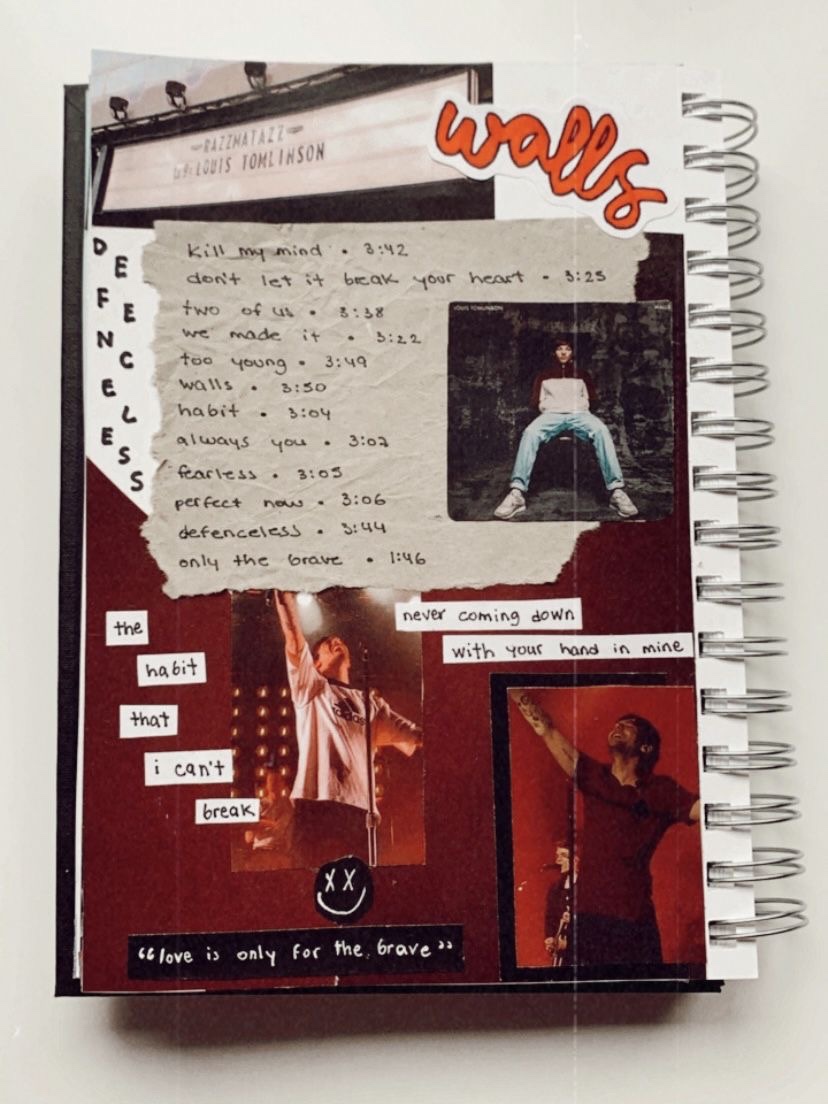 RAZZMATAZZ
LOUIS TOMLINSON
walls
DEFENCELESS
kill my mind • 3:42
don't let it break your heart • 3:25
two of us • 3:38
we made it • 3:22
too young • 3:49
walls • 3:50
habit • 3:04
always you • 3:02
fearless • 3:05
perfect now • 3:06
defenceless • 3:44
only the brave • 1:46
LOUIS TOMLINSON
WALLS
the
habit
that
i can't
break
never coming down
with your hand in mine
adidas
"love is only for the brave"